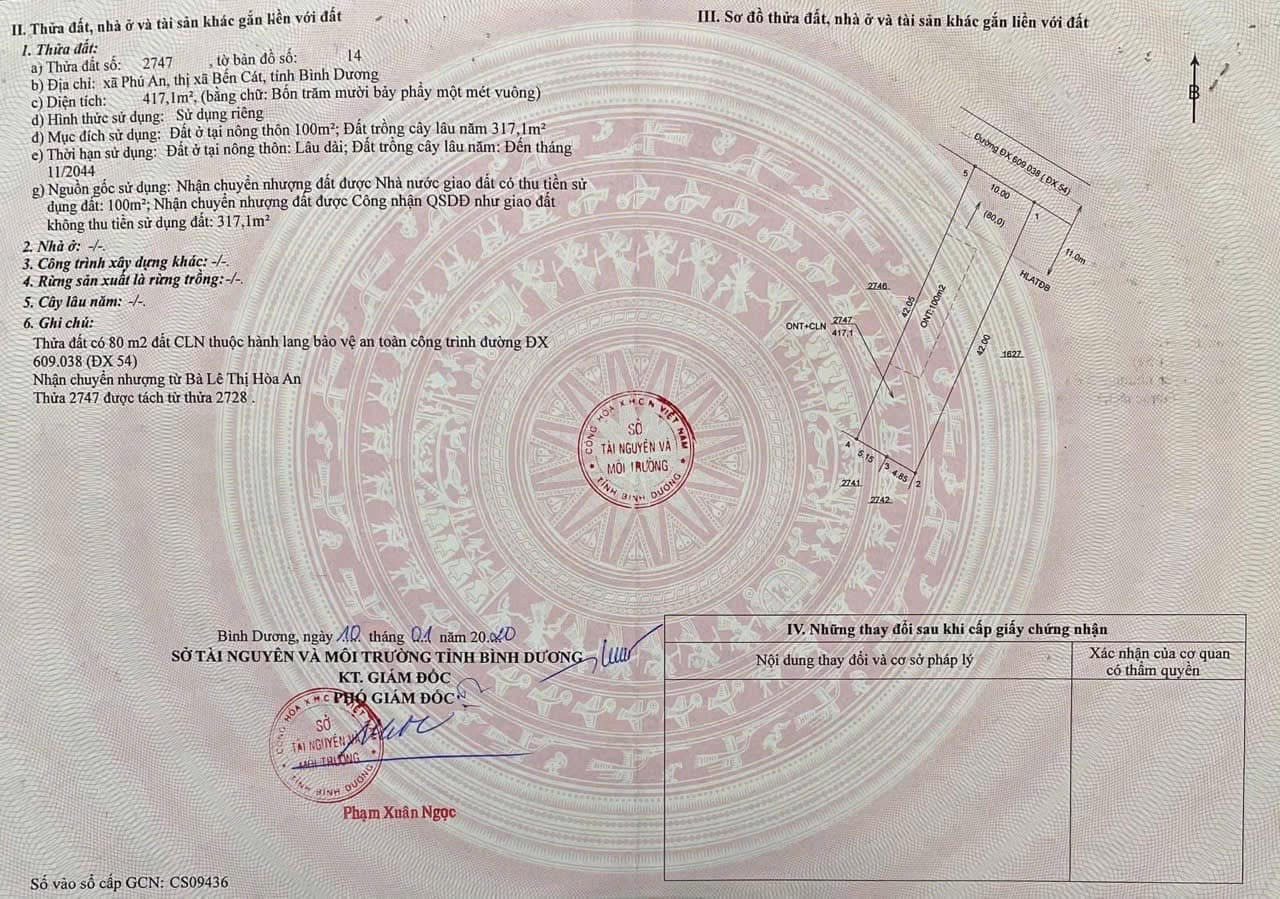 II. Thửa đất, nhà ở và tài sản khác gắn liền với đất
1. Thửa đất:
a) Thửa đất số: 2747 , tờ bản đồ số: 14
b) Địa chỉ: xã Phú An, thị xã Bến Cát, tỉnh Bình Dương
c) Diện tích: 417,1m², (bằng chữ: Bốn trăm mười bảy phẩy một mét vuông)
d) Hình thức sử dụng: Sử dụng riêng
đ) Mục đích sử dụng: Đất ở tại nông thôn 100m²; Đất trồng cây lâu năm 317,1m²
e) Thời hạn sử dụng: Đất ở tại nông thôn: Lâu dài; Đất trồng cây lâu năm: Đến tháng
11/2044
g) Nguồn gốc sử dụng: Nhận chuyển nhượng đất được Nhà nước giao đất có thu tiền sử
dụng đất: 100m²; Nhận chuyển nhượng đất được Công nhận QSDĐ như giao đất
không thu tiền sử dụng đất: 317,1m²
2. Nhà ở: -/-.
3. Công trình xây dựng khác: -/-.
4. Rừng sản xuất là rừng trồng:-/-.
5. Cây lâu năm: -/-.
6. Ghi chú:
Thửa đất có 80 m2 đất CLN thuộc hành lang bảo vệ an toàn công trình đường ĐX
609.038 (ĐX 54)
Nhận chuyển nhượng từ Bà Lê Thị Hòa An
Thửa 2747 được tách từ thửa 2728 .
Bình Dương, ngày 10 tháng 01 năm 2020
SỞ TÀI NGUYÊN VÀ MÔI TRƯỜNG TỈNH BÌNH DƯƠNG
KT. GIÁM ĐỐC
PHÓ GIÁM ĐỐC
CỘNG HÒA X.H.C.N VIỆT NAM
SỞ
TÀI NGUYÊN VÀ
MÔI TRƯỜNG
TỈNH BÌNH DƯƠNG
Phạm Xuân Ngọc
Số vào sổ cấp GCN: CS09436
III. Sơ đồ thửa đất, nhà ở và tài sản khác gắn liền với đất
B
Đường ĐX 609.038 ( ĐX 54)
5
10.00
1
(80,0)
11.0m
HLATĐB
2746
42.05
ONT:100m2
ONT+CLN
2747
417,1
42.00
1627
4
5.15
3
4.85
2
2741
2742
CỘNG HÒA X.H.C.N VIỆT NAM
SỞ
TÀI NGUYÊN VÀ
MÔI TRƯỜNG
TỈNH BÌNH DƯƠNG
IV. Những thay đổi sau khi cấp giấy chứng nhận
Nội dung thay đổi và cơ sở pháp lý
Xác nhận của cơ quan
có thẩm quyền